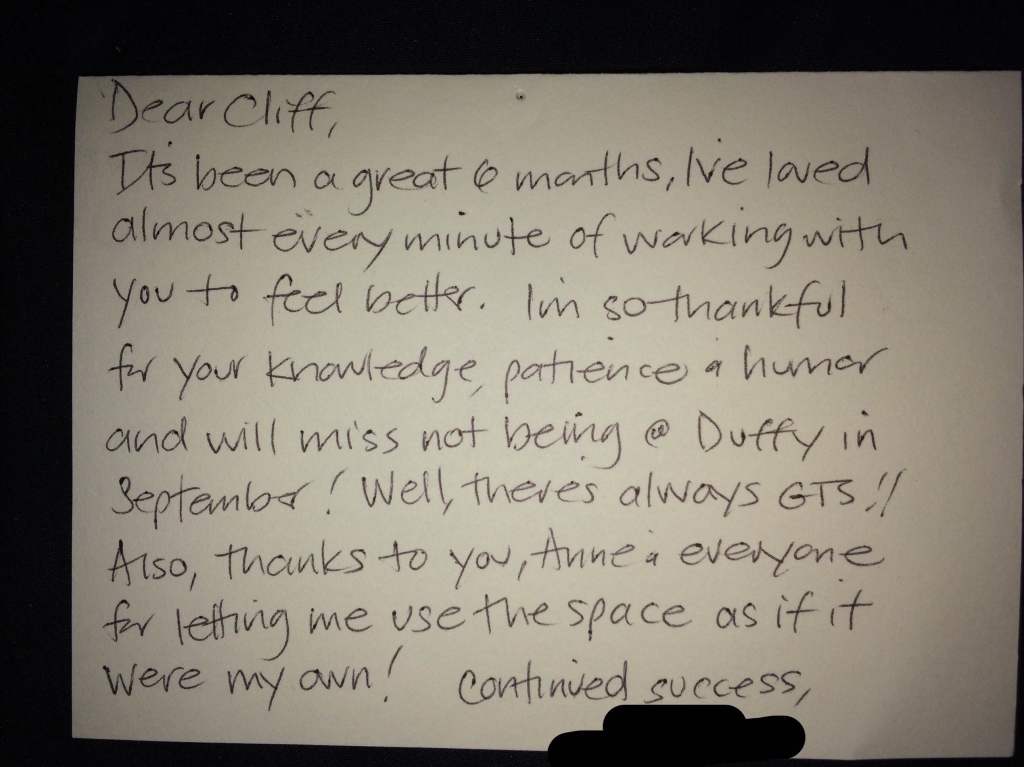 Dear Cliff,
It's been a great 6 months, I've loved
almost every minute of working with
you to feel better. I'm so thankful
for your knowledge, patience & humor
and will miss not being @ Duffy in
September! Well, theres always GTS!!
Also, thanks to you, Anne & everyone
for letting me use the space as if it
were my own! Continued success,